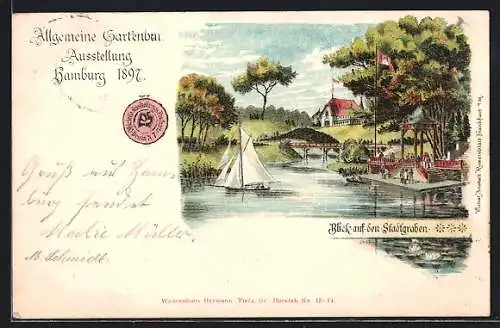 Allgemeine Gartenbau
Ausstellung
Hamburg 1897.
Gruß aus Ham
burg sendet
Malie Müller
M. Schmidt
Blick auf den Stadtgraben.
Warenhaus Hermann Tietz, Gr. Burstah No. 12-14